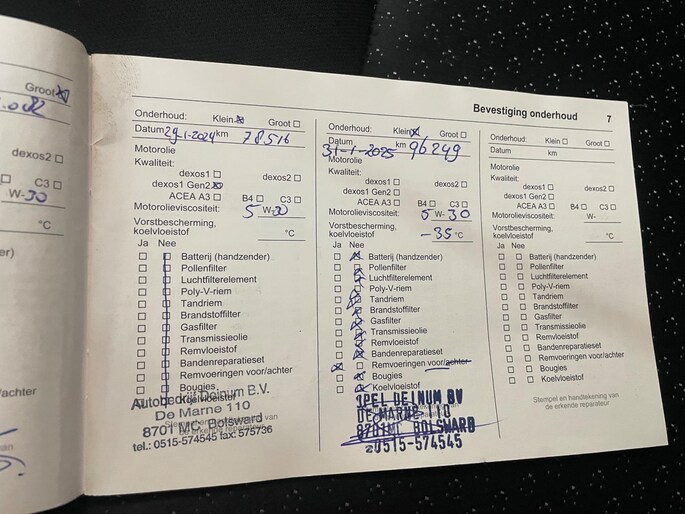 Groot
dexos2
C3
W-30
°C
/achter
Bevestiging onderhoud 7
Onderhoud: Klein Groot
Datum 29-1-2024 km 78516
Motorolie
Kwaliteit:
dexos1 dexos2
dexos1 Gen2
ACEA A3 B4 C3
Motorolieviscositeit: 5 W-30
Vorstbescherming,
koelvloeistof °C
Ja Nee
Batterij (handzender)
Pollenfilter
Luchtfilterelement
Poly-V-riem
Tandriem
Brandstoffilter
Gasfilter
Transmissieolie
Remvloeistof
Bandenreparatieset
Remvoeringen voor/achter
Bougies
Koelvloeistof
Autobedrijf Deinum B.V.
De Marne 110
8701 MC Bolsward
tel.: 0515-574545 fax: 575736
Onderhoud: Klein Groot
Datum 31-1-2025 km 96249
Motorolie
Kwaliteit:
dexos1 dexos2
dexos1 Gen2
ACEA A3 B4 C3
Motorolieviscositeit: 5 W-30
Vorstbescherming,
koelvloeistof -35 °C
Ja Nee
Batterij (handzender)
Pollenfilter
Luchtfilterelement
Poly-V-riem
Tandriem
Brandstoffilter
Gasfilter
Transmissieolie
Remvloeistof
Bandenreparatieset
Remvoeringen voor/achter
Bougies
Koelvloeistof
DEINUM BV
DE MARNE 110
8701MC BOLSWARD
0515-574545
Onderhoud: Klein Groot
Datum km
Motorolie
Kwaliteit:
dexos1 dexos2
dexos1 Gen2
ACEA A3 B4 C3
Motorolieviscositeit: W-
Vorstbescherming,
koelvloeistof °C
Ja Nee
Batterij (handzender)
Pollenfilter
Luchtfilterelement
Poly-V-riem
Tandriem
Brandstoffilter
Gasfilter
Transmissieolie
Remvloeistof
Bandenreparatieset
Remvoeringen voor/achter
Bougies
Koelvloeistof
Stempel en handtekening van
de erkende reparateur